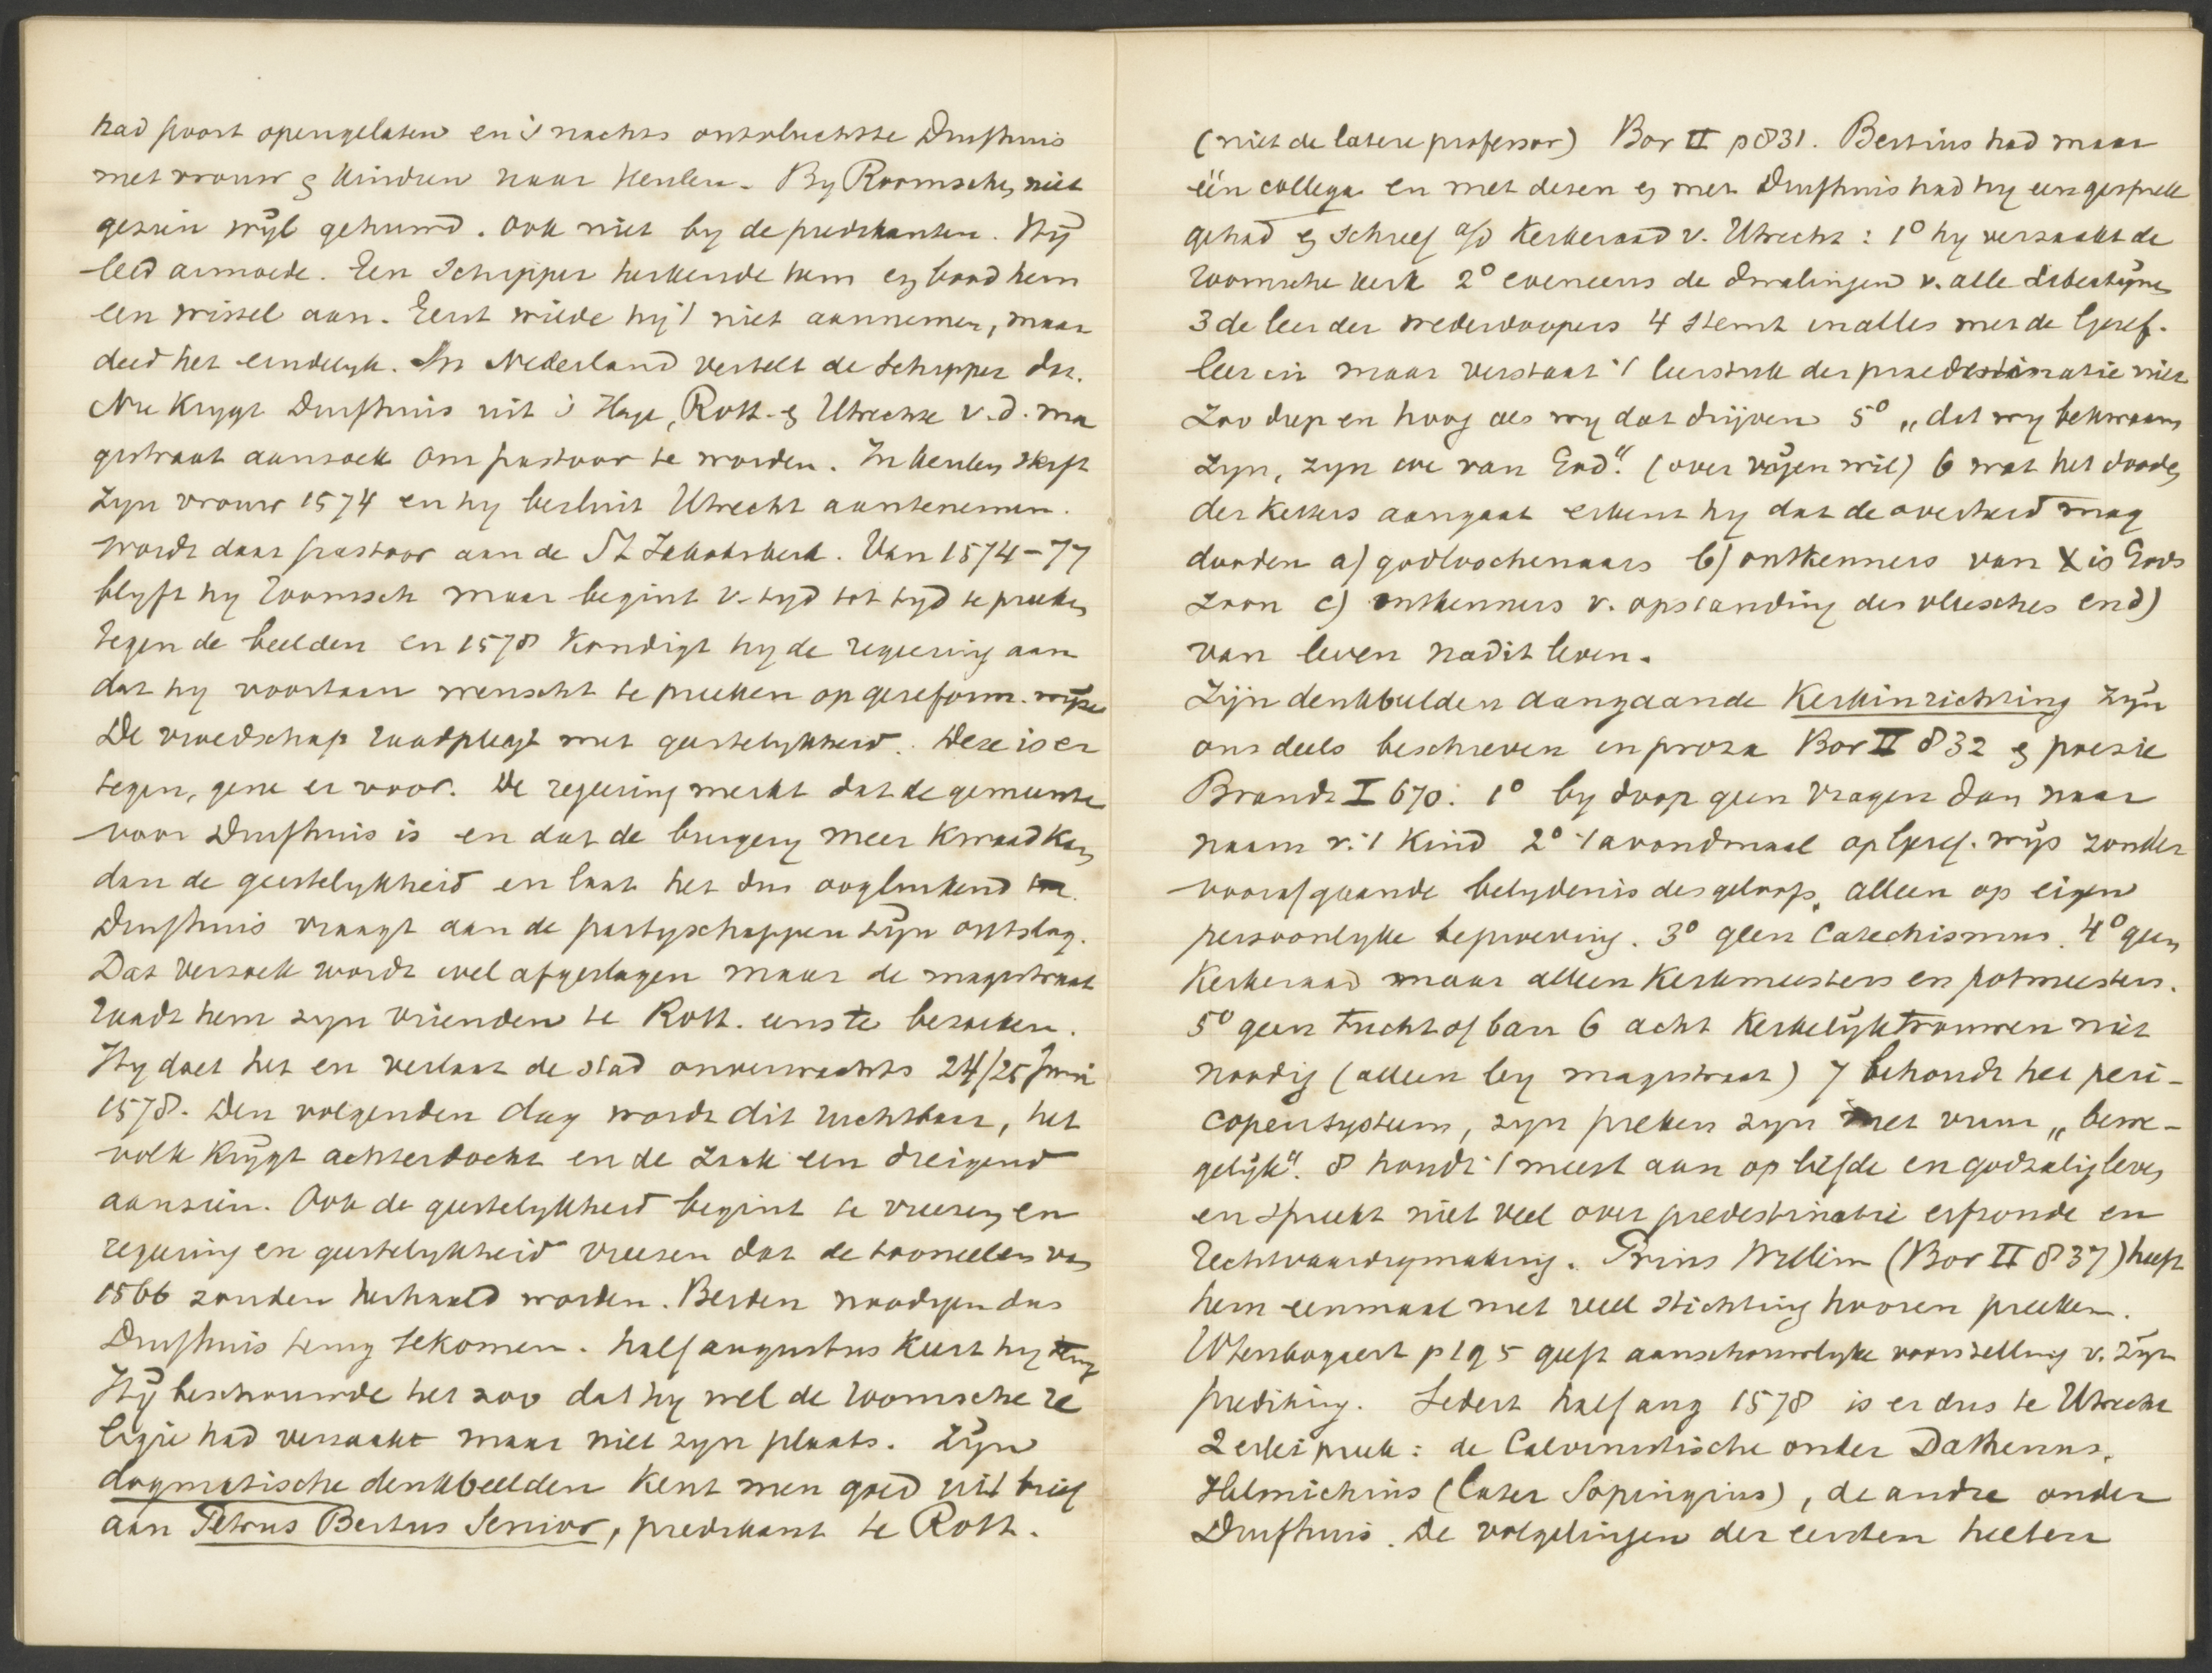 had poort opengelaten en 's nachts ontvluchtte Duifhuis
met vrouw & kinderen naar Keulen. By Roomschen niet
gezien wÿl gehuwd. Ook niet by de predikanten. Hÿ
leed armoede. Een schipper herkende hem en bood hem
een wissel aan. Eerst wilde hy 't niet aannemen, maar
deed het eindelyk. In Nederland vertelt de schipper dat.
Nu krygt Duifhuis uit 's Hage, Rott. & Utrecht v. d. ma
gistraat aanzoek om pastoor te worden. In Keulen sterft
zyn vrouw 1574 en hy besluit Utrecht aantenemen.
wordt daar pastoor aan de St Jakobskerk. Van 1574-77
blyft hy roomsch maar begint v. tyd tot tyd te preeken
tegen de beelden en 1578 kondigt hy de regeering aan
dat hy voortaan wenscht te preeken op gereform. wÿze
De vroedschap raadpleegt met geestelykheid. Deze is er
tegen, gene er voor. De regeering merkt dat de gemeente
voor Duifhuis is en dat de burgery meer kwaad kan
dan de geestelykheid en laat het dus oogluikend toe.
Duifhuis vraagt aan de partyschappen zÿn ontslag.
Dat verzoek wordt wel afgeslagen maar de magistraat
raadt hem zyn vrienden te Rott. eens te bezoeken.
Hy doet het en verlaat de stad onverwachts 24/25 Juni
1578. Den volgenden dag wordt dit ruchtbaar, het
volk krÿgt achterdocht en de zaak een dreigend
aanzien. Ook de geestelykheid begint te vreezen en
regeering en geestelykheid vreesen dat de tooneelen van
1566 zouden herhaald worden. Beiden noodigen dus
Duifhuis terug tekomen. half augustus keert hy terug
Hÿ beschouwde het zoo dat hy wel de roomsche re
ligie had verzaakt maar niet zyn plaats. Zÿn
dogmatische denkbeelden kent men goed uit brief
aan Petrus Bertius Senior, predikant te Rott.
(niet de latere professor) Bor II p 831. Bertius had maar
één collega en met dezen & met Duifhuis had hy een gesprek
gehad & schreef a/d Kerkeraad v. Utrecht: 1° hy verzaakt de
roomsche kerk 2° eveneens de dwalingen v. alle Libertÿnen
3 de leer der wederdoopers 4 stemt in alles met de Geref.
leer in maar verstaat 't leerstuk der praedestinatie niet
zoo diep en hoog als wy dat drijven 5° „dat wy bekwaam
zyn, zyn we van God." (over vrÿen wil) 6 wat het dooden
der ketters aangaat erkent hy dat de overheid mag
dooden a) godloochenaars b) ontkenners van X is Gods
zoon c) ontkenners v. opstanding des vleesches en d)
van leven nadit leven.
Zijn denkbeelden aangaande Kerkinrichting zÿn
ons deels beschreven in proza Bor II 832 & poezie
Brandt I 670: 1° by doop geen vragen dan naar
naam v. 't kind 2° 't avondmaal op Geref. wÿs zonder
voorafgaande belydenis des geloofs, alleen op eigen
persoonlyke beproeving. 3° geen Catechismus. 4° geen
Kerkeraad maar alleen Kerkmeesters en potmeesters.
5° geen tucht of ban 6 acht Kerkelÿk trouwen niet
noodig (alleen by magistraat) 7 behoudt het peri-
copensysteem, zyn preken zyn met vuur „bewe-
gelÿk". 8 houdt 't meest aan op liefde en godzalig leven
en spreekt niet veel over predestinatie erfzonde en
rechtvaardigmaking. Prins Willem (Bor II 837) heeft
hem eenmaal met veel stichting hooren preeken.
Wtenbogaert p 195 geeft aanschouwelyke voorstelling v. zÿn
prediking. Sedert half aug 1578 is er dus te Utrecht
2 erlei preek: de Calvinistische onder Dathenus,
Helmichius (later Sopingius), de andre onder
Duifhuis. De volgelingen der eersten heeten